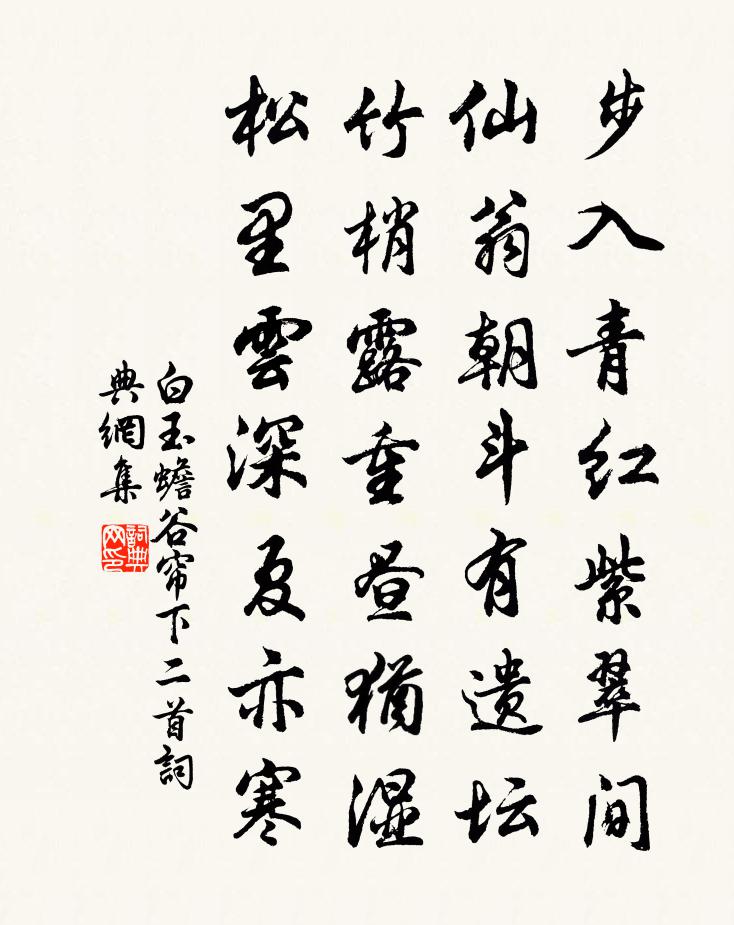 步入青红紫翠间
仙翁朝斗有遗坛
竹梢露重昼犹湿
松里雲深夏亦寒
白玉蟾谷帘下二首詞
典網集
詞典
网印